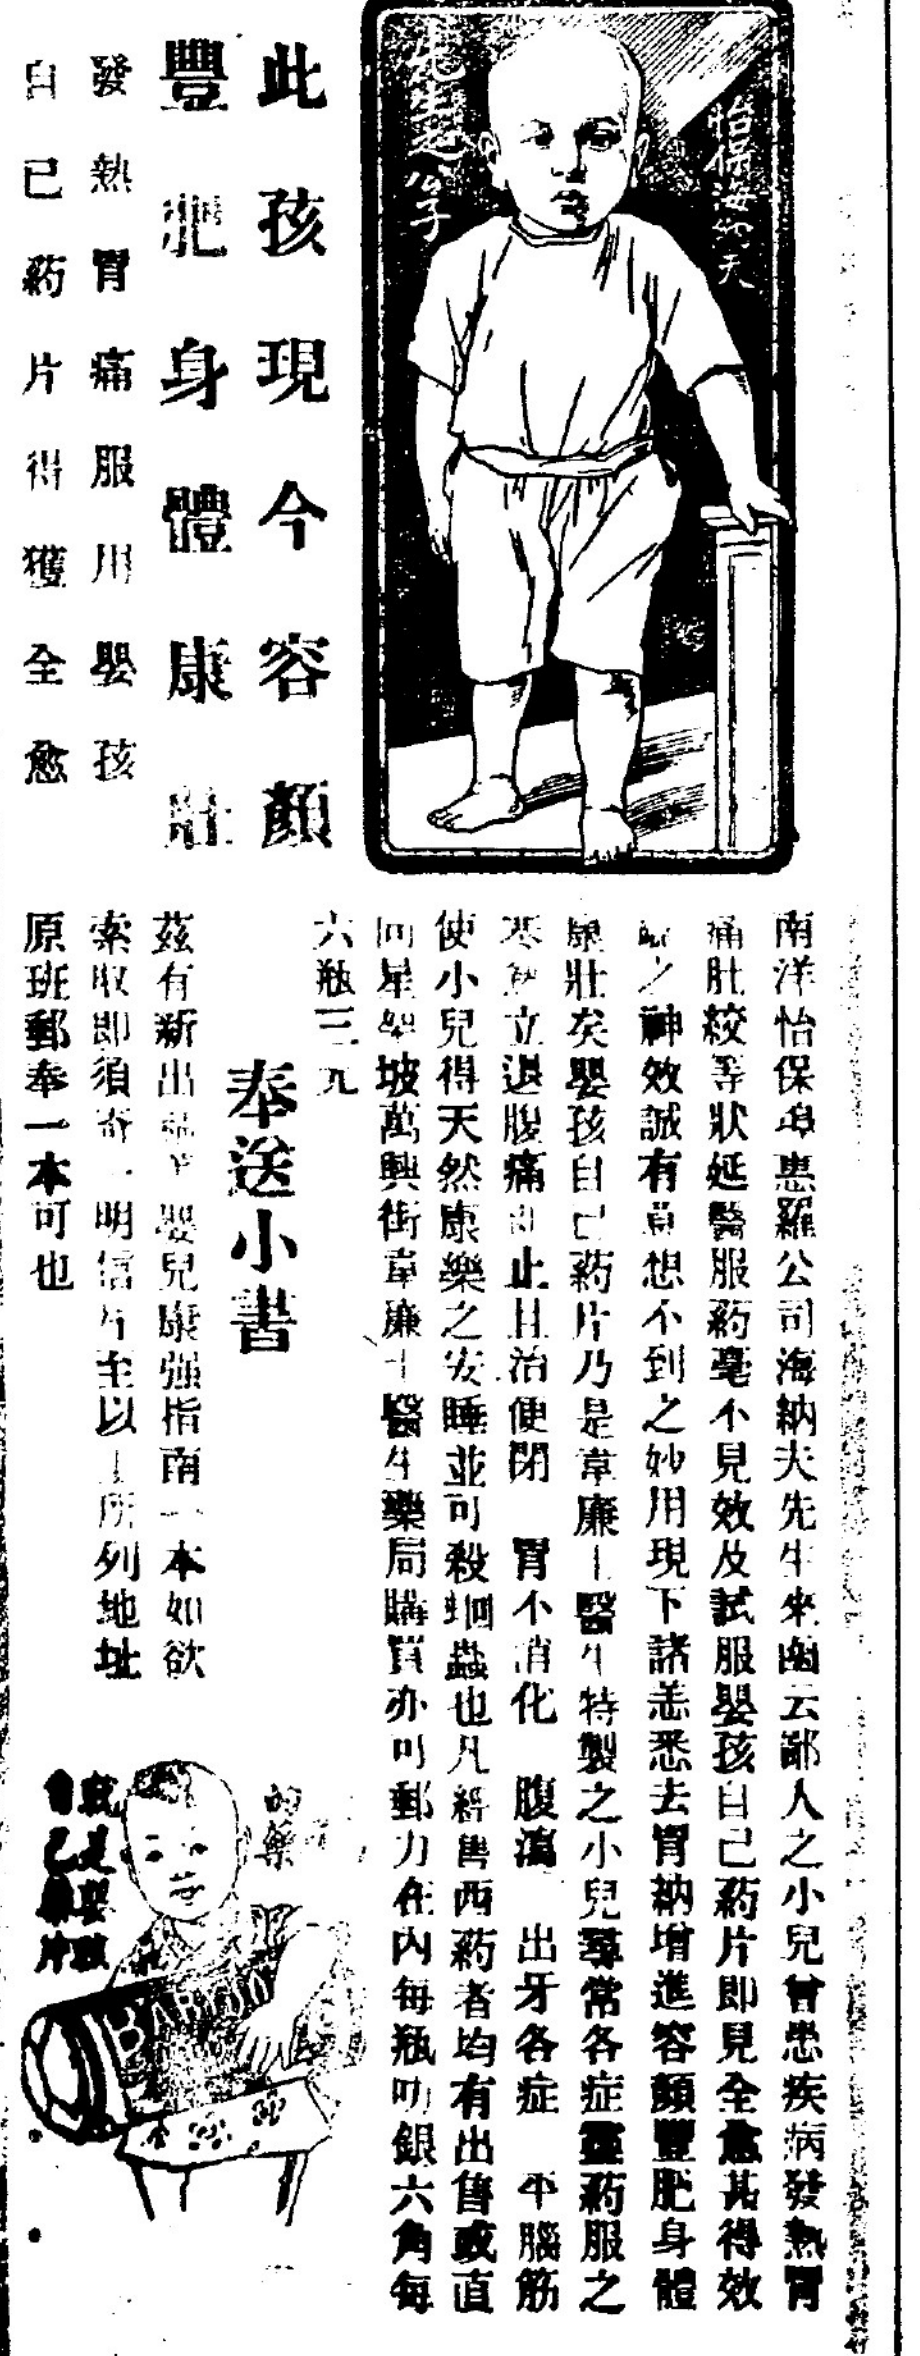 怡保海納夫
先生之公子
此孩現今容顏
豐肥身體康壯
發熱胃痛服用嬰孩
自己药片得獲全愈
南洋怡保埠惠羅公司海納夫先生來函云鄙人之小兒曾患疾病發熱胃
痛肚絞等狀延醫服药毫不見效及試服嬰孩自己药片即見全愈其得效
之神效誠有意想不到之妙用現下諸恙悉去胃納增進容顏豐肥身體
康壯矣嬰孩自己药片乃是韋廉士醫生特製之小兒尋常各症靈药服之
寒熱立退腹痛即止且治便閉 胃不消化 腹瀉 出牙各症 平腦筋
使小兒得天然康樂之安睡並可殺蛔蟲也凡經售西药者均有出售或直
向星架坡萬興街韋廉士醫生藥局購買亦可郵力在內每瓶叻銀六角每
六瓶三元
奉送小書
茲有新出嬰兒康强指南一本如欲
索取即須寄一明信片至以上所列地址
原班郵奉一本可也
的藥
就是嬰孩
自己藥片
BABY'S O